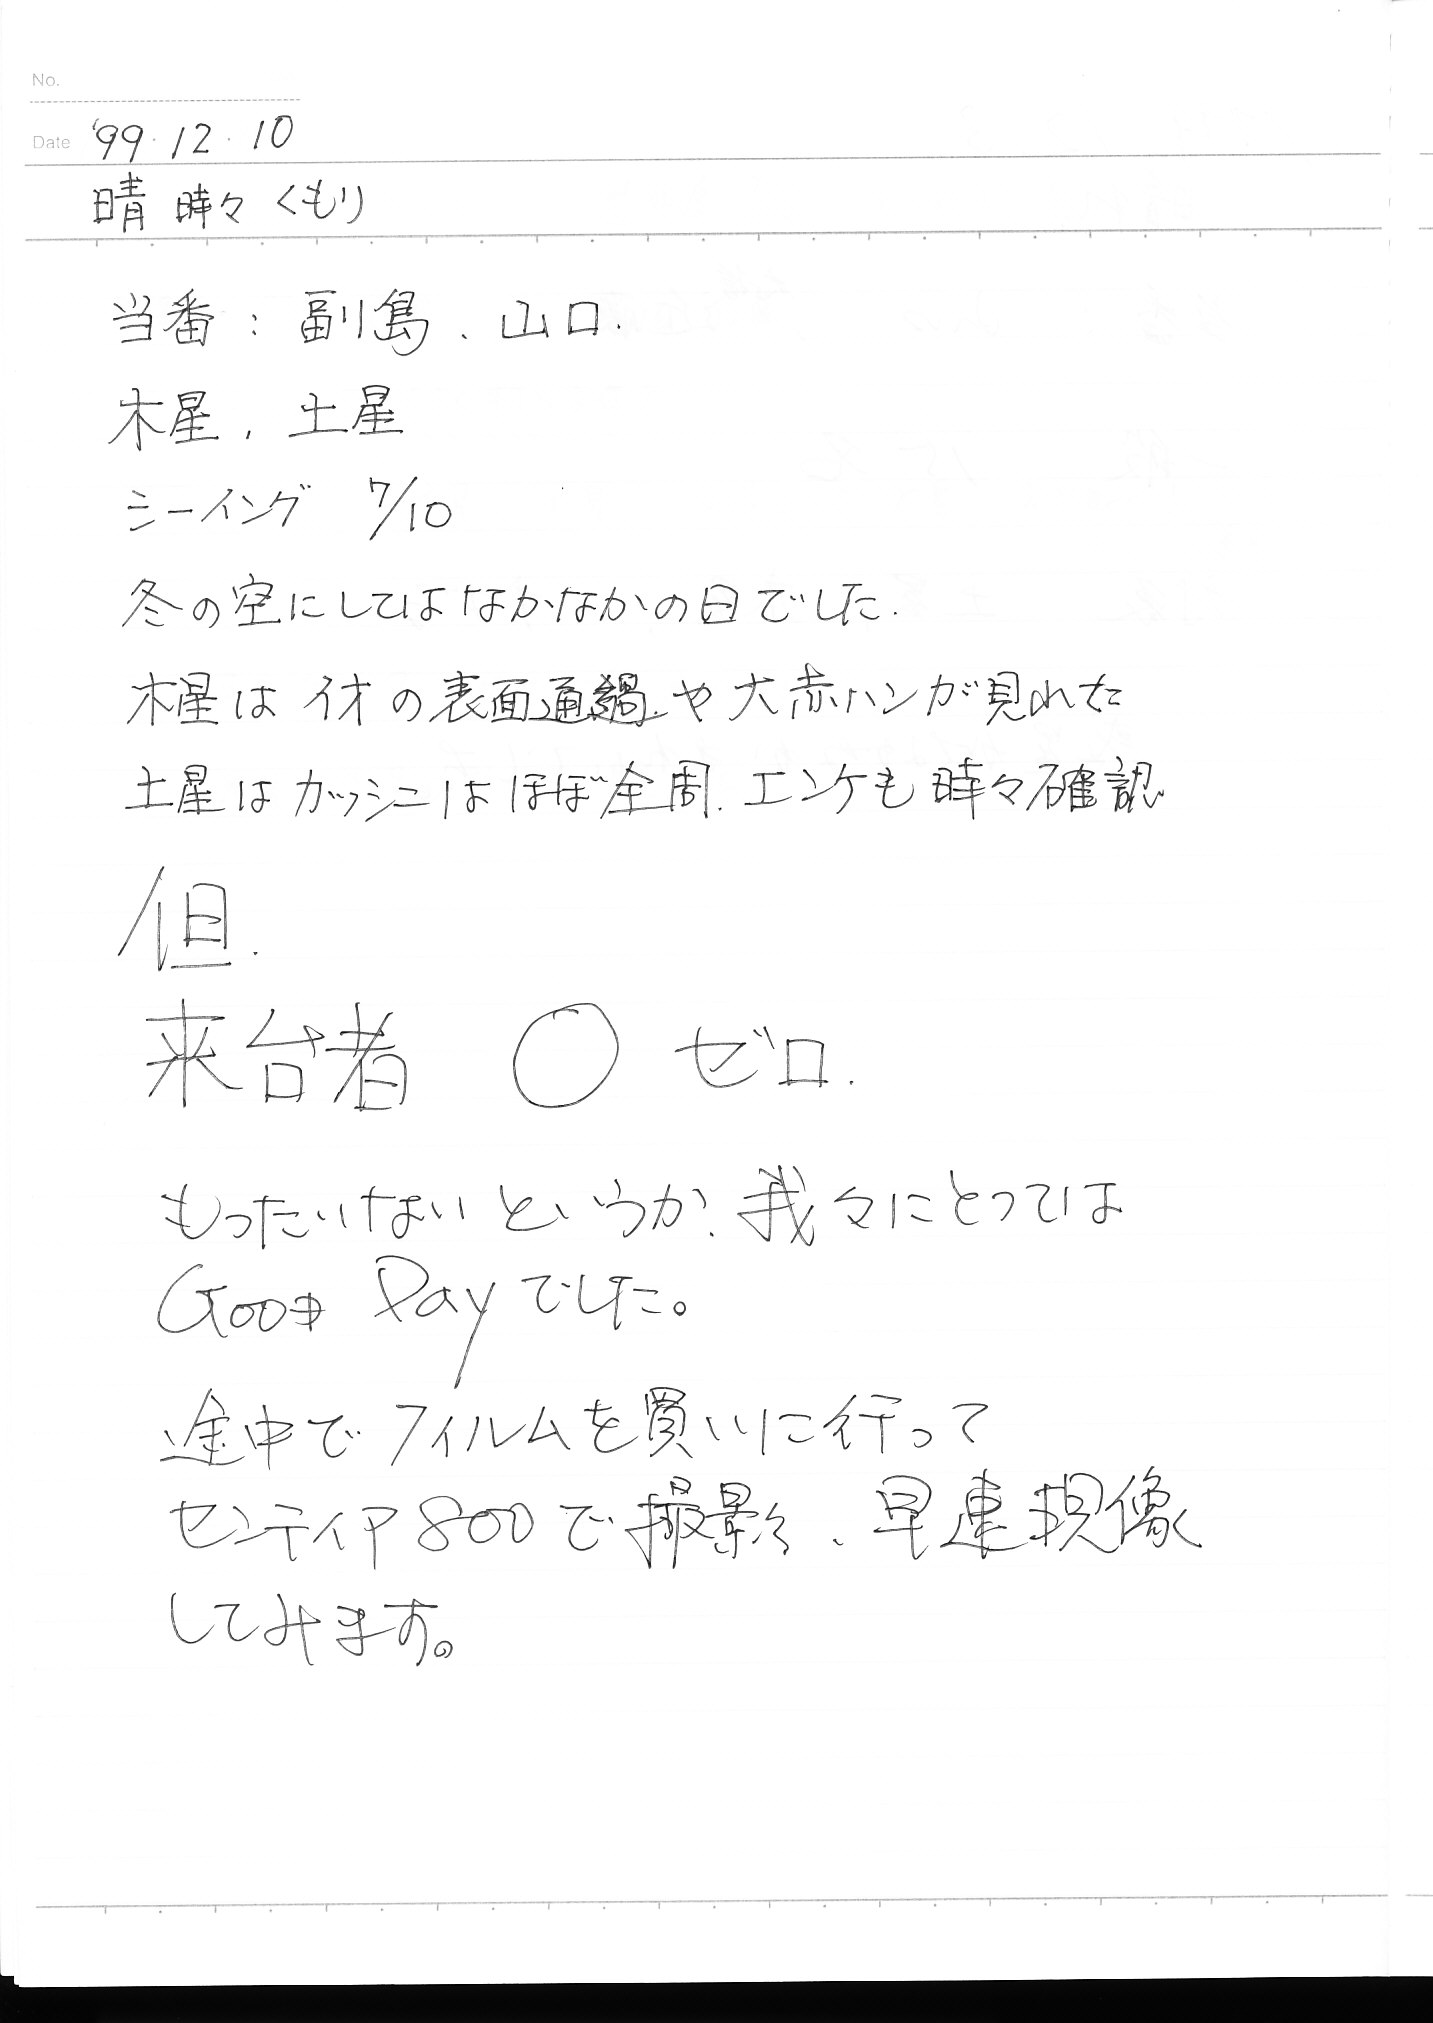 No.
Date '99・12・10
晴 時々 くもり
当番：副島、山口.
木星，土星
シーイング 7/10
冬の空にしてはなかなかの日でした.
木星はイオの表面通過や大赤ハンが見れた
土星はカッシニはほぼ全周、エンケも時々確認
但.
来台者 ○ ゼロ.
もったいないというか、我々にとっては
Good Dayでした。
途中でフィルムを買いに行って
センティア800で撮影、早速現像
してみます。